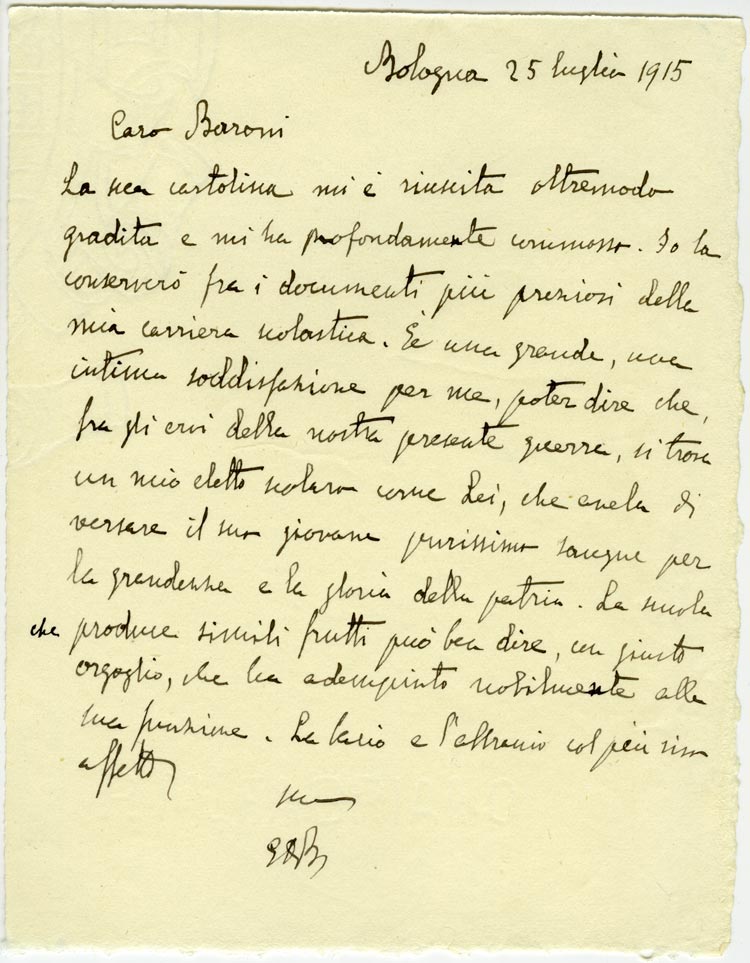 Bologna 25 luglio 1915
Caro Baroni
La sua cartolina mi è riuscita oltremodo
gradita e mi ha profondamente commosso. Io la
conserverò fra i documenti più preziosi della
mia carriera scolastica. È una grande, una
intima soddisfazione per me, poter dire che,
fra gli eroi della nostra presente guerra, si trova
un mio eletto scolaro come Lei, che anela di
versare il suo giovane purissimo sangue per
la grandezza e la gloria della patria. La scuola
che produce simili frutti può ben dire, con giusto
orgoglio, che ha adempiuto nobilmente alla
sua funzione. La bacio e l'abbraccio col più vivo
affetto
suo